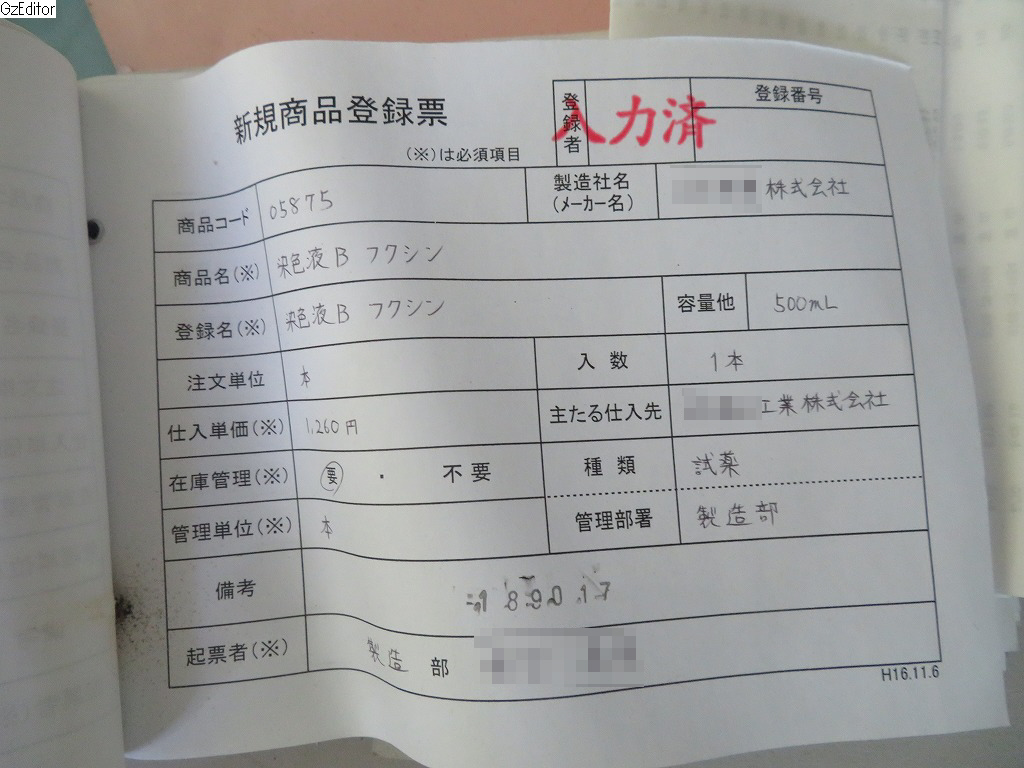 GzEditor
新規商品登録票
(※)は必須項目
登録者
入力済
登録番号
商品コード 05875
製造社名
(メーカー名)
株式会社
商品名(※) 染色液B フクシン
登録名(※) 染色液B フクシン
容量他 500mL
注文単位 本
入数 1本
仕入単価(※) 1,260円
主たる仕入先 工業株式会社
在庫管理(※) 要 ・ 不要
種類 試薬
管理単位(※) 本
管理部署 製造部
備考
起票者(※) 製造 部
H16.11.6